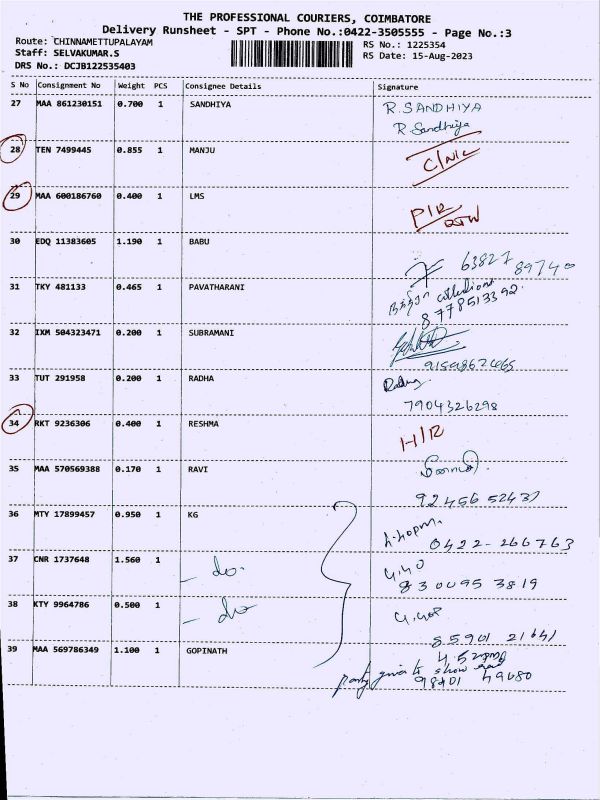 THE PROFESSIONAL COURIERS, COIMBATORE
Delivery Runsheet - SPT - Phone No.:0422-3505555 - Page No.:3
Route: CHINNAMETTUPALAYAM
RS No.: 1225354
Staff: SELVAKUMAR.S
RS Date: 15-Aug-2023
DRS No.: DCJB122535403
S No Consignment No Weight PCS Consignee Details Signature
27 MAA 861230151 0.700 1 SANDHIYA R.SANDHIYA
R.Sandhiya
28 TEN 7499445 0.855 1 MANJU C/NC
29 MAA 600186760 0.400 1 LMS P/R
30 EDQ 11383605 1.190 1 BABU 63827
89740
31 TKY 481133 0.465 1 PAVATHARANI
8778513392
32 IXM 504323471 0.200 1 SUBRAMANI
33 TUT 291958 0.200 1 RADHA
7904326298
34 RKT 9236306 0.400 1 RESHMA H/R
35 MAA 570569388 0.170 1 RAVI
92456 52437
36 MTY 17899457 0.950 1 KG
0422-266763
37 CNR 1737648 1.560 1 - do.
830095 3819
38 KTY 9964786 0.500 1 - do
85901 21641
39 MAA 569786349 1.100 1 GOPINATH
98401 49680